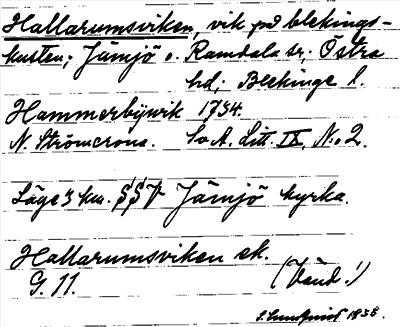 Hallarumsviken, vik på blekings-
kusten; Jämjö o. Ramdala sr; Östra
hd; Blekinge l.
Hammerbÿwik 1734.
N. Strömcrona. SvA. Litt. IX, N:o 2.
Läge 3 km. SSV Jämjö kyrka.
Hallarumsviken ek.
G. 11. (Vänd!)
S. Lundquist 1938.